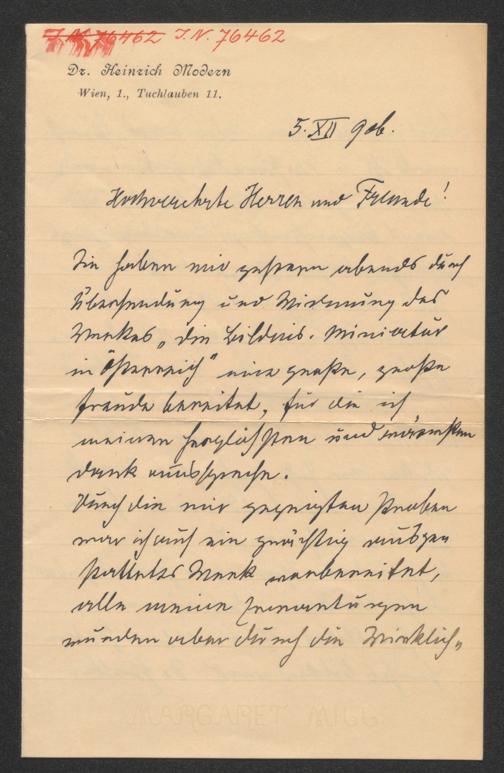 I.N. 76462 I.N. 76462
Dr. Heinrich Modern
Wien, 1., Tuchlauben 11.
5. XII 906.
Hochverehrte Herren und Freunde!
Sie haben mir gestern abends durch
Übersendung und Widmung des
Werkes „die Bildnis-Miniatur
in Österreich" eine große, große
Freude bereitet, für die ich
meinen herzlichsten und wärmsten
Dank ausspreche.
Durch die mir gezeigten Proben
war ich auf ein prächtig ausge-
stattetes Werk vorbereitet,
alle meine Erwartungen
wurden aber durch die Wirklich„
MARGARET MILL